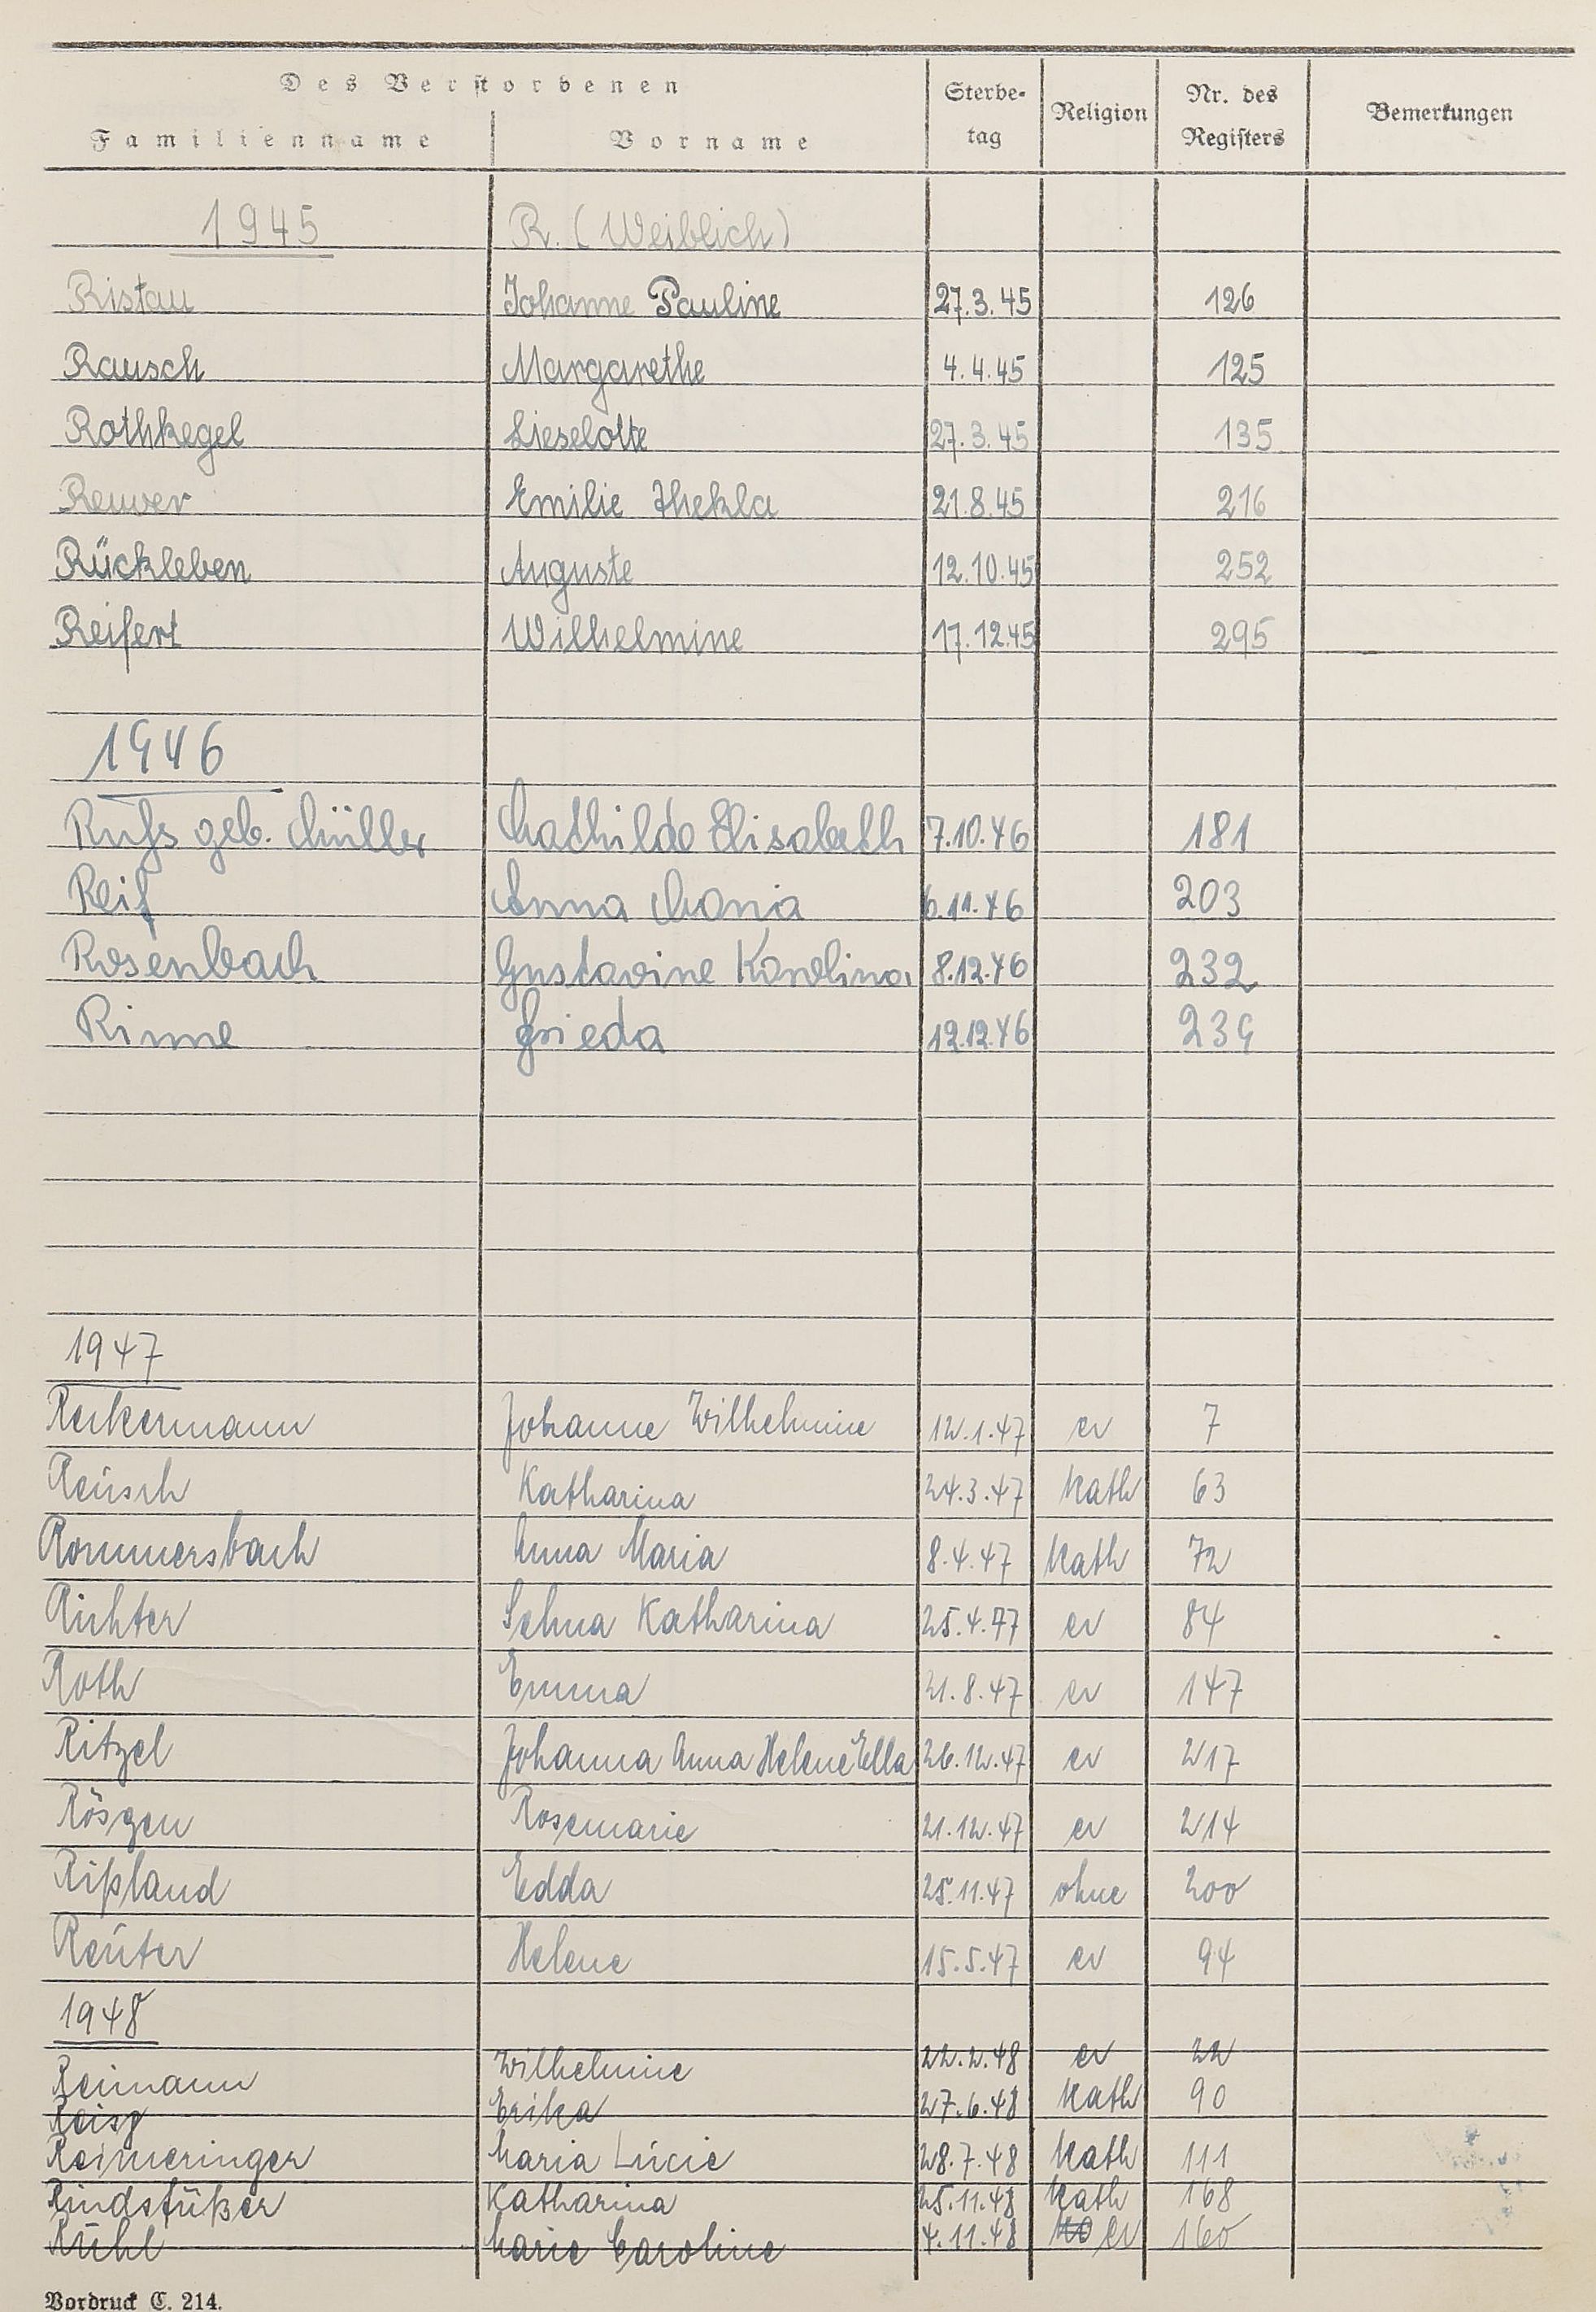 Des Verstorbenen
Familienname Vorname Sterbe-tag Religion Nr. des Registers Bemerkungen
1945 R. (Weiblich)
Ristau Johanne Pauline 27.3.45 126
Rausch Margarethe 4.4.45 125
Rothkegel Lieselotte 27.3.45 135
Reuver Emilie Thekla 21.8.45 216
Rückleben Auguste 12.10.45 252
Reifert Wilhelmine 17.12.45 295
1946
Rufs geb. Müller Mathilde Elisabeth 7.10.46 181
Reif Anna Maria 6.11.46 203
Rosenbach Gustavine Karolina 8.12.46 232
Rinne Frieda 12.12.46 239
1947
Reckermann Johanne Wilhelmine 12.1.47 ev 7
Reüsch Katharina 24.3.47 Kath 63
Rommersbach Anna Maria 8.4.47 Kath 72
Richter Selma Katharina 25.4.77 ev 84
Roth Emma 21.8.47 ev 147
Ritzel Johanna Anna Helene Ella 26.12.47 ev 217
Rösgen Rosemarie 21.12.47 ev 214
Rißland Edda 25.11.47 ohne 200
Reüter Helene 15.5.47 ev 94
1948
Reimann Wilhelmine 22.2.48 ev 22
Reisg Erika 27.6.48 Kath 90
Reimeringer Maria Lúcie 28.7.48 Kath 111
Rindsfüßer Katharina 25.11.48 Kath 168
Rühl Marie Caroline 4.11.48 ev 160
Vordruck C. 214.